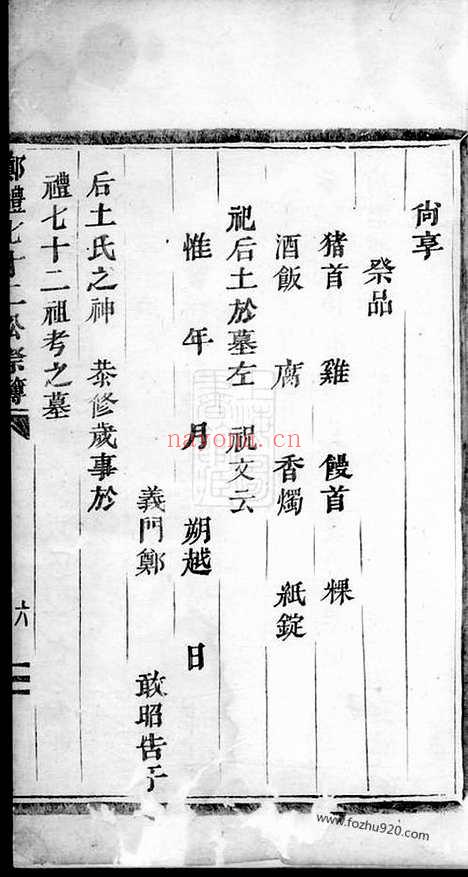 尙享
祭品
猪首 雞 饅首 粿
酒飯 腐 香燭 紙錠
祀后土於墓左 祝文云
惟 年 月 朔越 日
義門鄭 敢昭告于
后土氏之神 恭修歲事於
禮七十二祖考之墓
鄭禮七十二公祭簿
六
nayona.cn
www.fozhu920.com